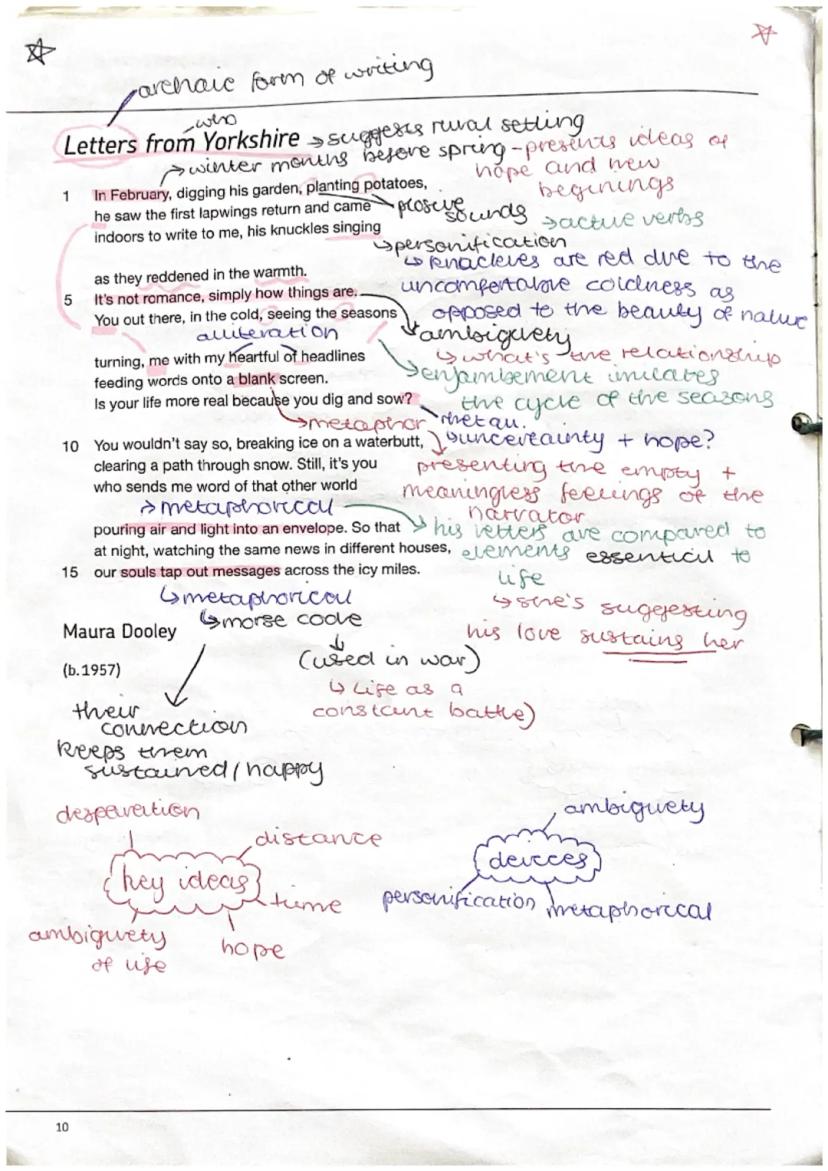 archaic form of writing
who
Letters from Yorkshire → suggests rural setting
→ winter months before spring - presents ideas of
hope and new
beginings
1 In February, digging his garden, planting potatoes,
he saw the first lapwings return and came
indoors to write to me, his knuckles singing
plosive
sounds → active verbs
↳ personification
↳ knuckles are red due to the
uncomfortable coldness as
opposed to the beauty of nature
as they reddened in the warmth.
5 It's not romance, simply how things are.
You out there, in the cold, seeing the seasons
alliteration
ambiguety
↳ what's the relationship
turning, me with my heartful of headlines
feeding words onto a blank screen.
Is your life more real because you dig and sow?
enjambement imitates
the cycle of the seasons
→ metaphor
uncertainty + hope?
10 You wouldn't say so, breaking ice on a waterbutt,
clearing a path through snow. Still, it's you
who sends me word of that other world
presenting the empty +
meaningless feelings of the
narrator
→ metaphorical
pouring air and light into an envelope. So that
at night, watching the same news in different houses,
15 our souls tap out messages across the icy miles.
his letters are compared to
elements essential to
life
↳ she's suggesting
his love sustains her
↳ metaphorical
↳ morse code
(used in war)
↳ life as a
constant battle)
Maura Dooley
(b.1957)
their
connection
keeps them
sustained / happy
desperation
distance
key ideas
time
ambiguety
of life
hope
ambiguety
devices
personification
metaphorical
10